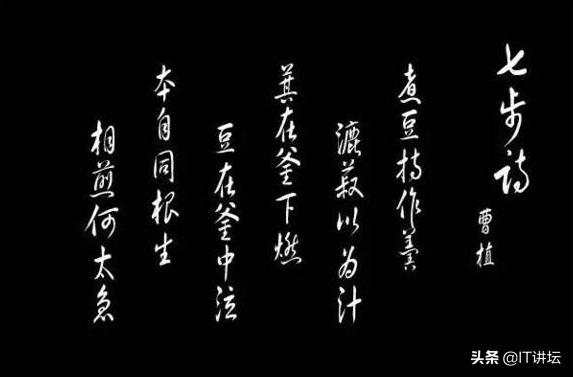 七步诗
曹植
煮豆持作羹
漉菽以为汁
萁在釜下燃
豆在釜中泣
本自同根生
相煎何太急
头条 @IT讲坛